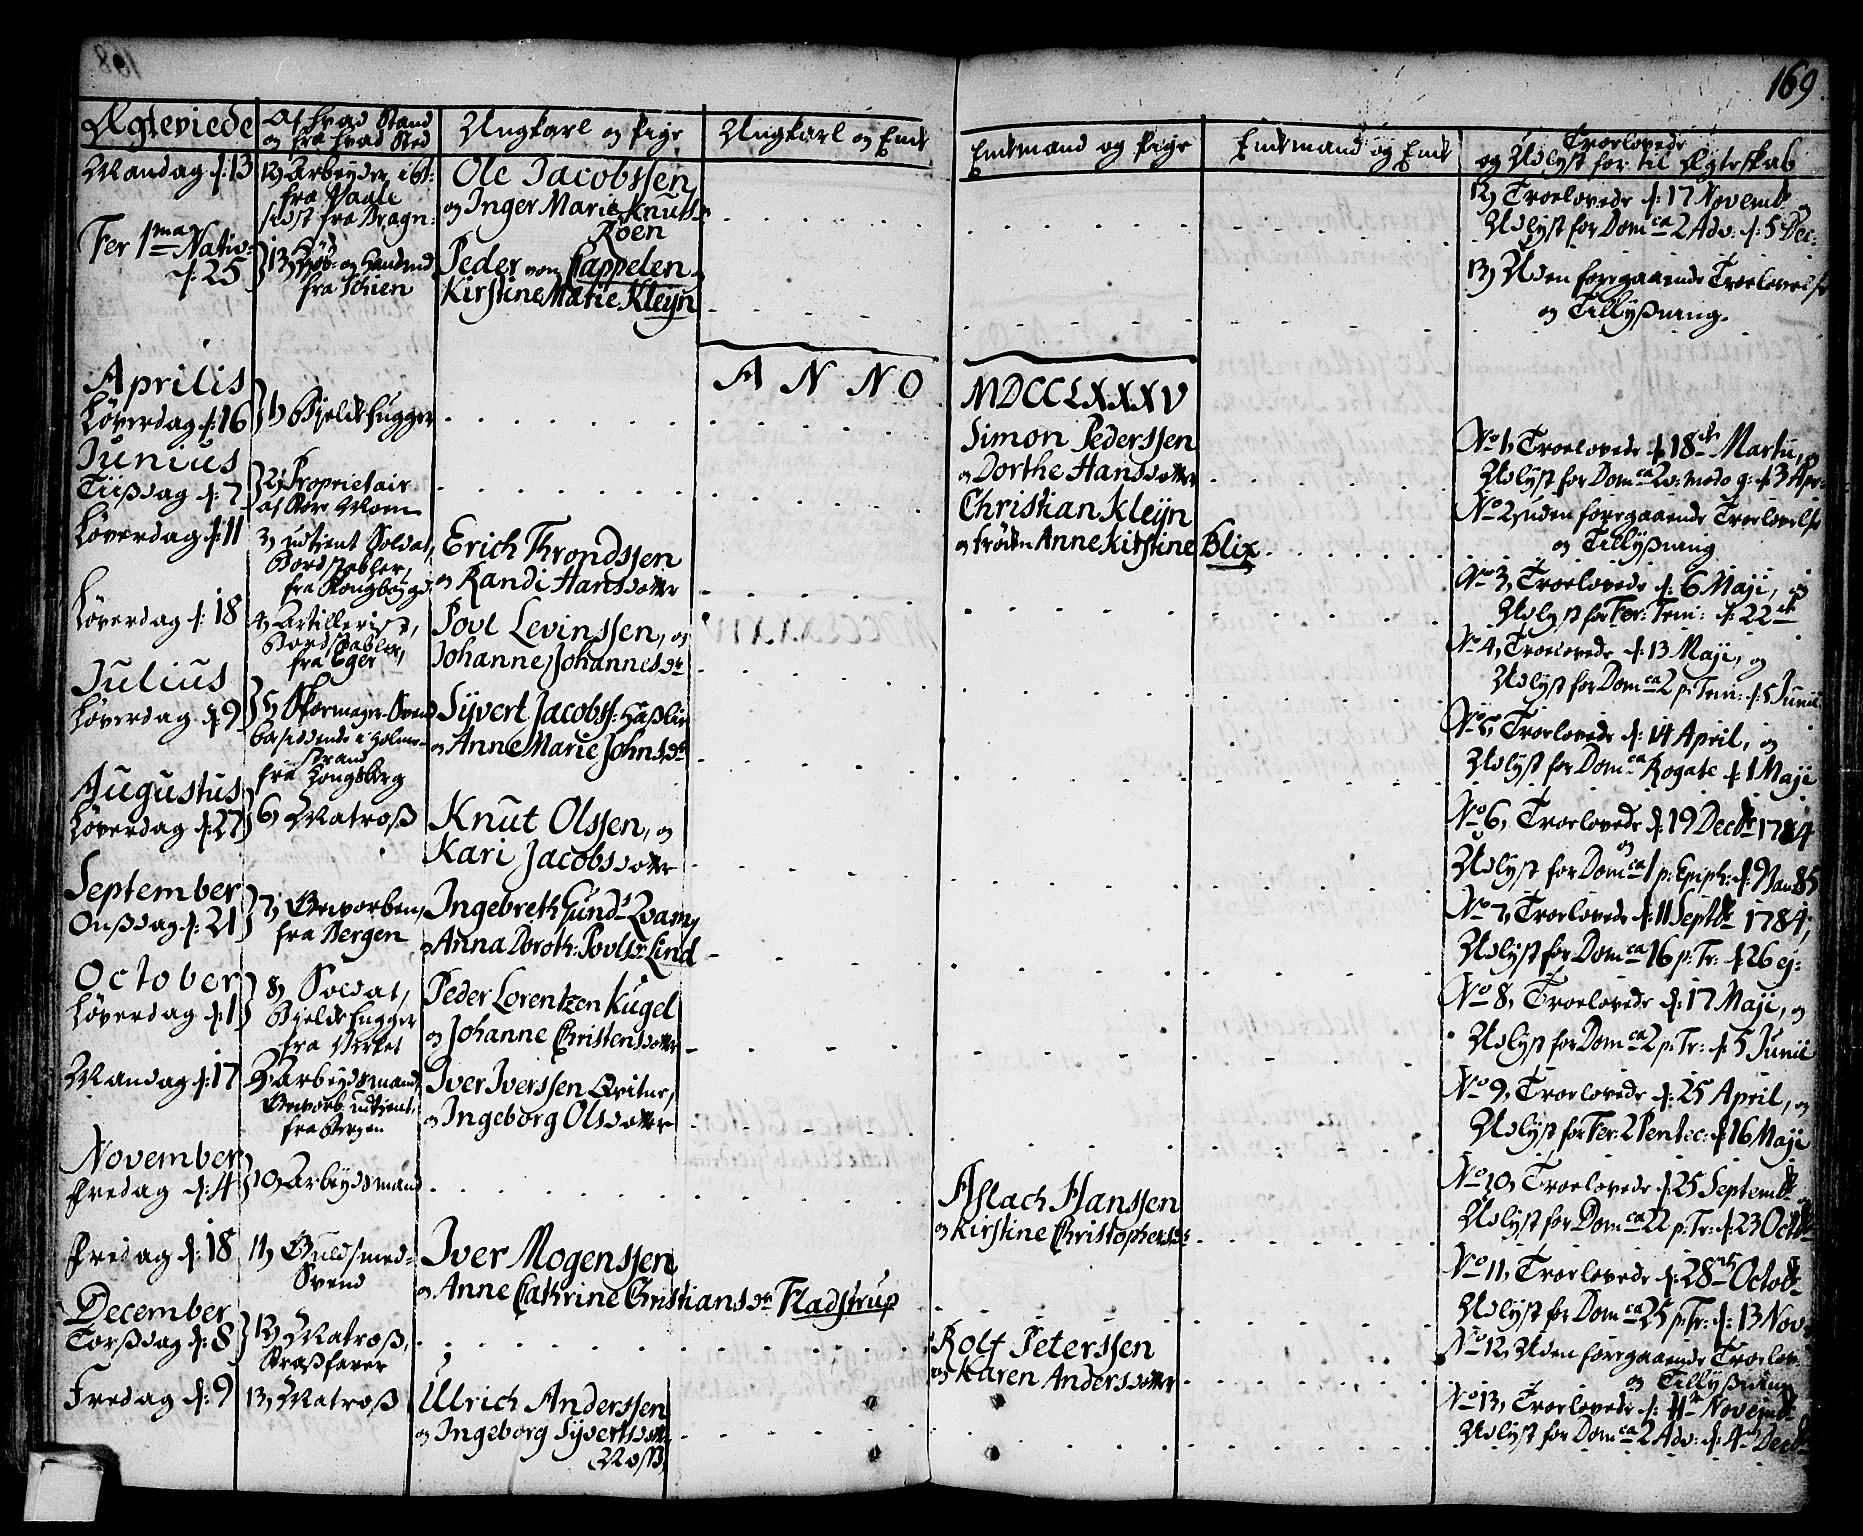 169.
Ægteviede
Af hvad Stand
og fra hvad Sted
Ungkarl og Pige
Ungkarl og Enke
Enkemand og Pige
Enkemand og Enke
Troelovede
og Udlyst for til Ægteskab
Mandag d: 13
12, Arbeyder
fra Vaale
sidst fra Dragn:
Ole Jacobssen
og Inger Marie Knuts
Roen
12, Troelovede d: 17 Novemb: og
Udlyst for Dom ca 2 Adv: d: 5 Dec:
Fer 1ma Nativ:
d: 25
13,
fra Schien
Peder von Cappelen
Kirstine Marie Kleyn
13, Uden foregaaende Troelovelse
og Tillysning.
A N N O
MDCCLXXXV
Aprilis
Løverdag d: 16
1, Bjelkehugger
Simon Pederssen
og Dorthe Hansdatter
No 1, Troelovede d: 18de Martii, og
Udlyst for Dom ca Qv: modo g: d: 3 Apr:
Junius
Tiisdag d: 7
2, Proprietair
Christian Kleyn
og frøken Anne Kirstine Blix
No 2, uden foregaaende Troelovelse
og Tillysning
Løverdag d: 11
3, udtient Soldat,
Bordstabler,
fra Kongbygd
Erich Throndssen
og Randi Hansdatter
No 3, Troelovede d: 6 Maji, og
Udlyst for Fer: Trin: d: 22de
Løverdag d: 18
4, Artillerist,
Bordstabler,
fra Eger
Povl Levinssen, og
Johanne Johannesdr
No 4, Troelovede d: 13 Maji, og
Udlyst for Dom ca 2 p: Trin: d: 5 Junii
Julius
Løverdag d: 9
5, Skomager-Svend
besiddende i Holme-
strand
fra Kongsberg
Syvert Jacobss: Haslie
og Anne Marie Johnsdr
No 5, Troelovede d: 14 April, og
Udlyst for Dom ca Rogate d: 1 Maji
Augustus
Løverdag d: 27
6, Matros
Knut Olssen, og
Kari Jacobsdatter
No 6, Troelovede d: 19 Decbr 1784
og
Udlyst for Dom ca 1 p: Epiph: d: 9 Jan 85
September
Onsdag d: 21
7, Gevorben,
fra Bergen
Ingebreth Gunds Qvam,
og Anna Doroth: Povlsdr Lind
No 7, Troelovede d: 11 Septbr 1784,
Udlyst for Dom ca 16 p: Tr: d: 26 ej:
October
Løverdag d: 1
8, Soldat,
Bjelkehugger
fra Verket
Peder Lorentzen Kugel
og Johanne Christensdatter
No 8, Troelovede d: 17 Maji, og
Udlyst for Dom ca 2 p: Tr: d: 5 Junii
Mandag d: 17
9, Arbeydsmand,
Gevorb: udtient,
fra Bergen
Iver Iverssen Qvitne,
og Ingeborg Olsdatter
No 9, Troelovede d: 25 April, og
Udlyst for Fer: 2 Pentec: d: 16 Maji
November
Fredag d: 4
10, Arbeydsmand
Aslach Hanssen
og Kirstine Christophersdr
No 10, Troelovede d: 25 Septembr og
Udlyst for Dom ca 22 p: Tr: d: 23 Octbr
Fredag d: 18
11, Guldsmed-
Svend
Iver Mogenssen
og Anne Cathrine Christiansdr Fladstrup
No 11, Troelovede d: 28de Octobr
Udlyst for Dom ca 25 p: Tr: d: 13 Nov:
December
Torsdag d: 8
12, Matros,
Rolf Peterssen
og Karen Andersdatter
No 12, Uden foregaaende Troelov:
og Tillysning
Fredag d: 9
13, Matros
Ulrich Anderssen
og Ingeborg Syvertsdatter
No 13, Troelovede d: 11te Novembr
Udlyst for Dom ca 2 Adv: d: 4de Decbr